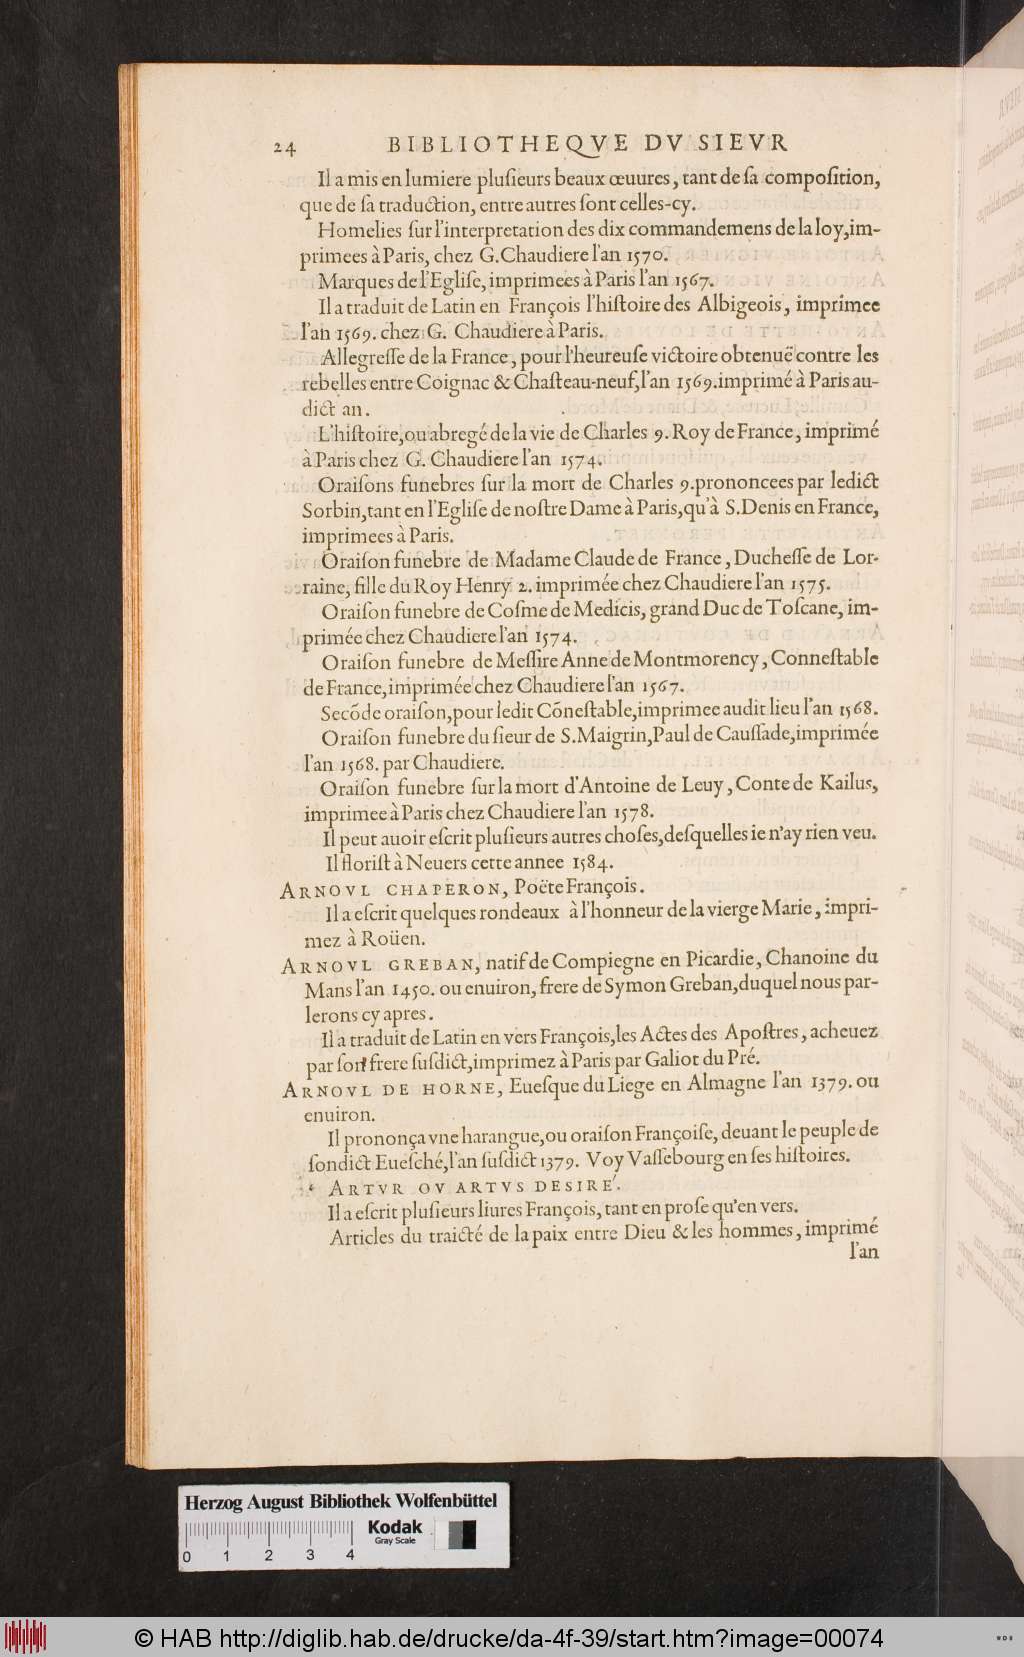 24 BIBLIOTHEQVE DV SIEVR
Il a mis en lumiere pluſieurs beaux œuures, tant de ſa compoſition,
que de ſa traduction, entre autres ſont celles-cy.
Homelies ſur l'interpretation des dix commandemens de la loy, im-
primees à Paris, chez G. Chaudiere l'an 1570.
Marques de l'Egliſe, imprimees à Paris l'an 1567.
Il a traduit de Latin en François l'hiſtoire des Albigeois, imprimee
l'an 1569. chez G. Chaudiere à Paris.
Allegreſſe de la France, pour l'heureuſe victoire obtenuë contre les
rebelles entre Coignac & Chaſteau-neuf, l'an 1569. imprimé à Paris au-
dict an.
L'hiſtoire, ou abregé de la vie de Charles 9. Roy de France, imprimé
à Paris chez G. Chaudiere l'an 1574.
Oraiſons funebres ſur la mort de Charles 9. prononcees par ledict
Sorbin, tant en l'Egliſe de noſtre Dame à Paris, qu'à S. Denis en France,
imprimees à Paris.
Oraiſon funebre de Madame Claude de France, Ducheſſe de Lor-
raine, fille du Roy Henry 2. imprimée chez Chaudiere l'an 1575.
Oraiſon funebre de Coſme de Medicis, grand Duc de Toſcane, im-
primée chez Chaudiere l'an 1574.
Oraiſon funebre de Meſſire Anne de Montmorency, Conneſtable
de France, imprimée chez Chaudiere l'an 1567.
Secõde oraiſon, pour ledit Cõneſtable, imprimee audit lieu l'an 1568.
Oraiſon funebre du ſieur de S. Maigrin, Paul de Cauſſade, imprimée
l'an 1568. par Chaudiere.
Oraiſon funebre ſur la mort d'Antoine de Leuy, Conte de Kailus,
imprimee à Paris chez Chaudiere l'an 1578.
Il peut auoir eſcrit pluſieurs autres choſes, deſquelles ie n'ay rien veu.
Il floriſt à Neuers cette annee 1584.
ARNOVL CHAPERON, Poëte François.
Il a eſcrit quelques rondeaux à l'honneur de la vierge Marie, impri-
mez à Roüen.
ARNOVL GREBAN, natif de Compiegne en Picardie, Chanoine du
Mans l'an 1450. ou enuiron, frere de Symon Greban, duquel nous par-
lerons cy apres.
Il a traduit de Latin en vers François, les Actes des Apoſtres, acheuez
par ſon frere ſuſdict, imprimez à Paris par Galiot du Pré.
ARNOVL DE HORNE, Eueſque du Liege en Almagne l'an 1379. ou
enuiron.
Il prononça vne harangue, ou oraiſon Françoiſe, deuant le peuple de
ſondict Eueſché, l'an ſuſdict 1379. Voy Vaſſebourg en ſes hiſtoires.
ARTVR OV ARTVS DESIRE'.
Il a eſcrit pluſieurs liures François, tant en proſe qu'en vers.
Articles du traicté de la paix entre Dieu & les hommes, imprimé
l'an
Herzog August Bibliothek Wolfenbüttel
0 1 2 3 4
Kodak
Gray Scale
© HAB http://diglib.hab.de/drucke/da-4f-39/start.htm?image=00074